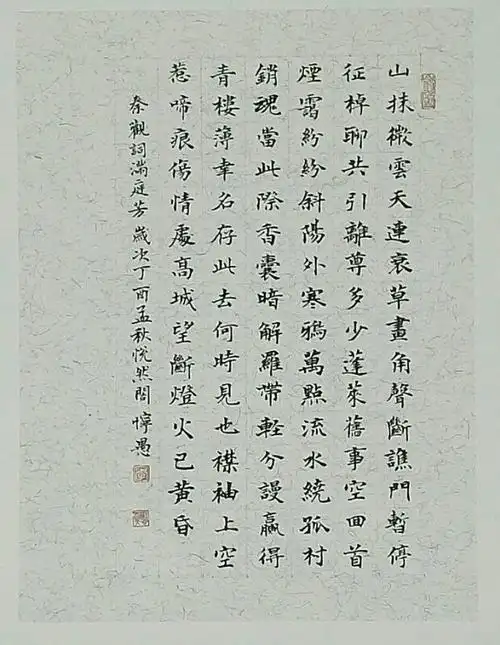 山抹微雲天連衰草畫角聲斷譙門暫停
征棹聊共引離尊多少蓬萊舊事空回首
煙靄紛紛斜陽外寒鴉萬點流水繞孤村
銷魂當此際香囊暗解羅帶輕分謾贏得
青樓薄幸名存此去何時見也襟袖上空
惹啼痕傷情處高城望斷燈火已黃昏
秦觀詞滿庭芳歲次丁酉孟秋悅然閣愚